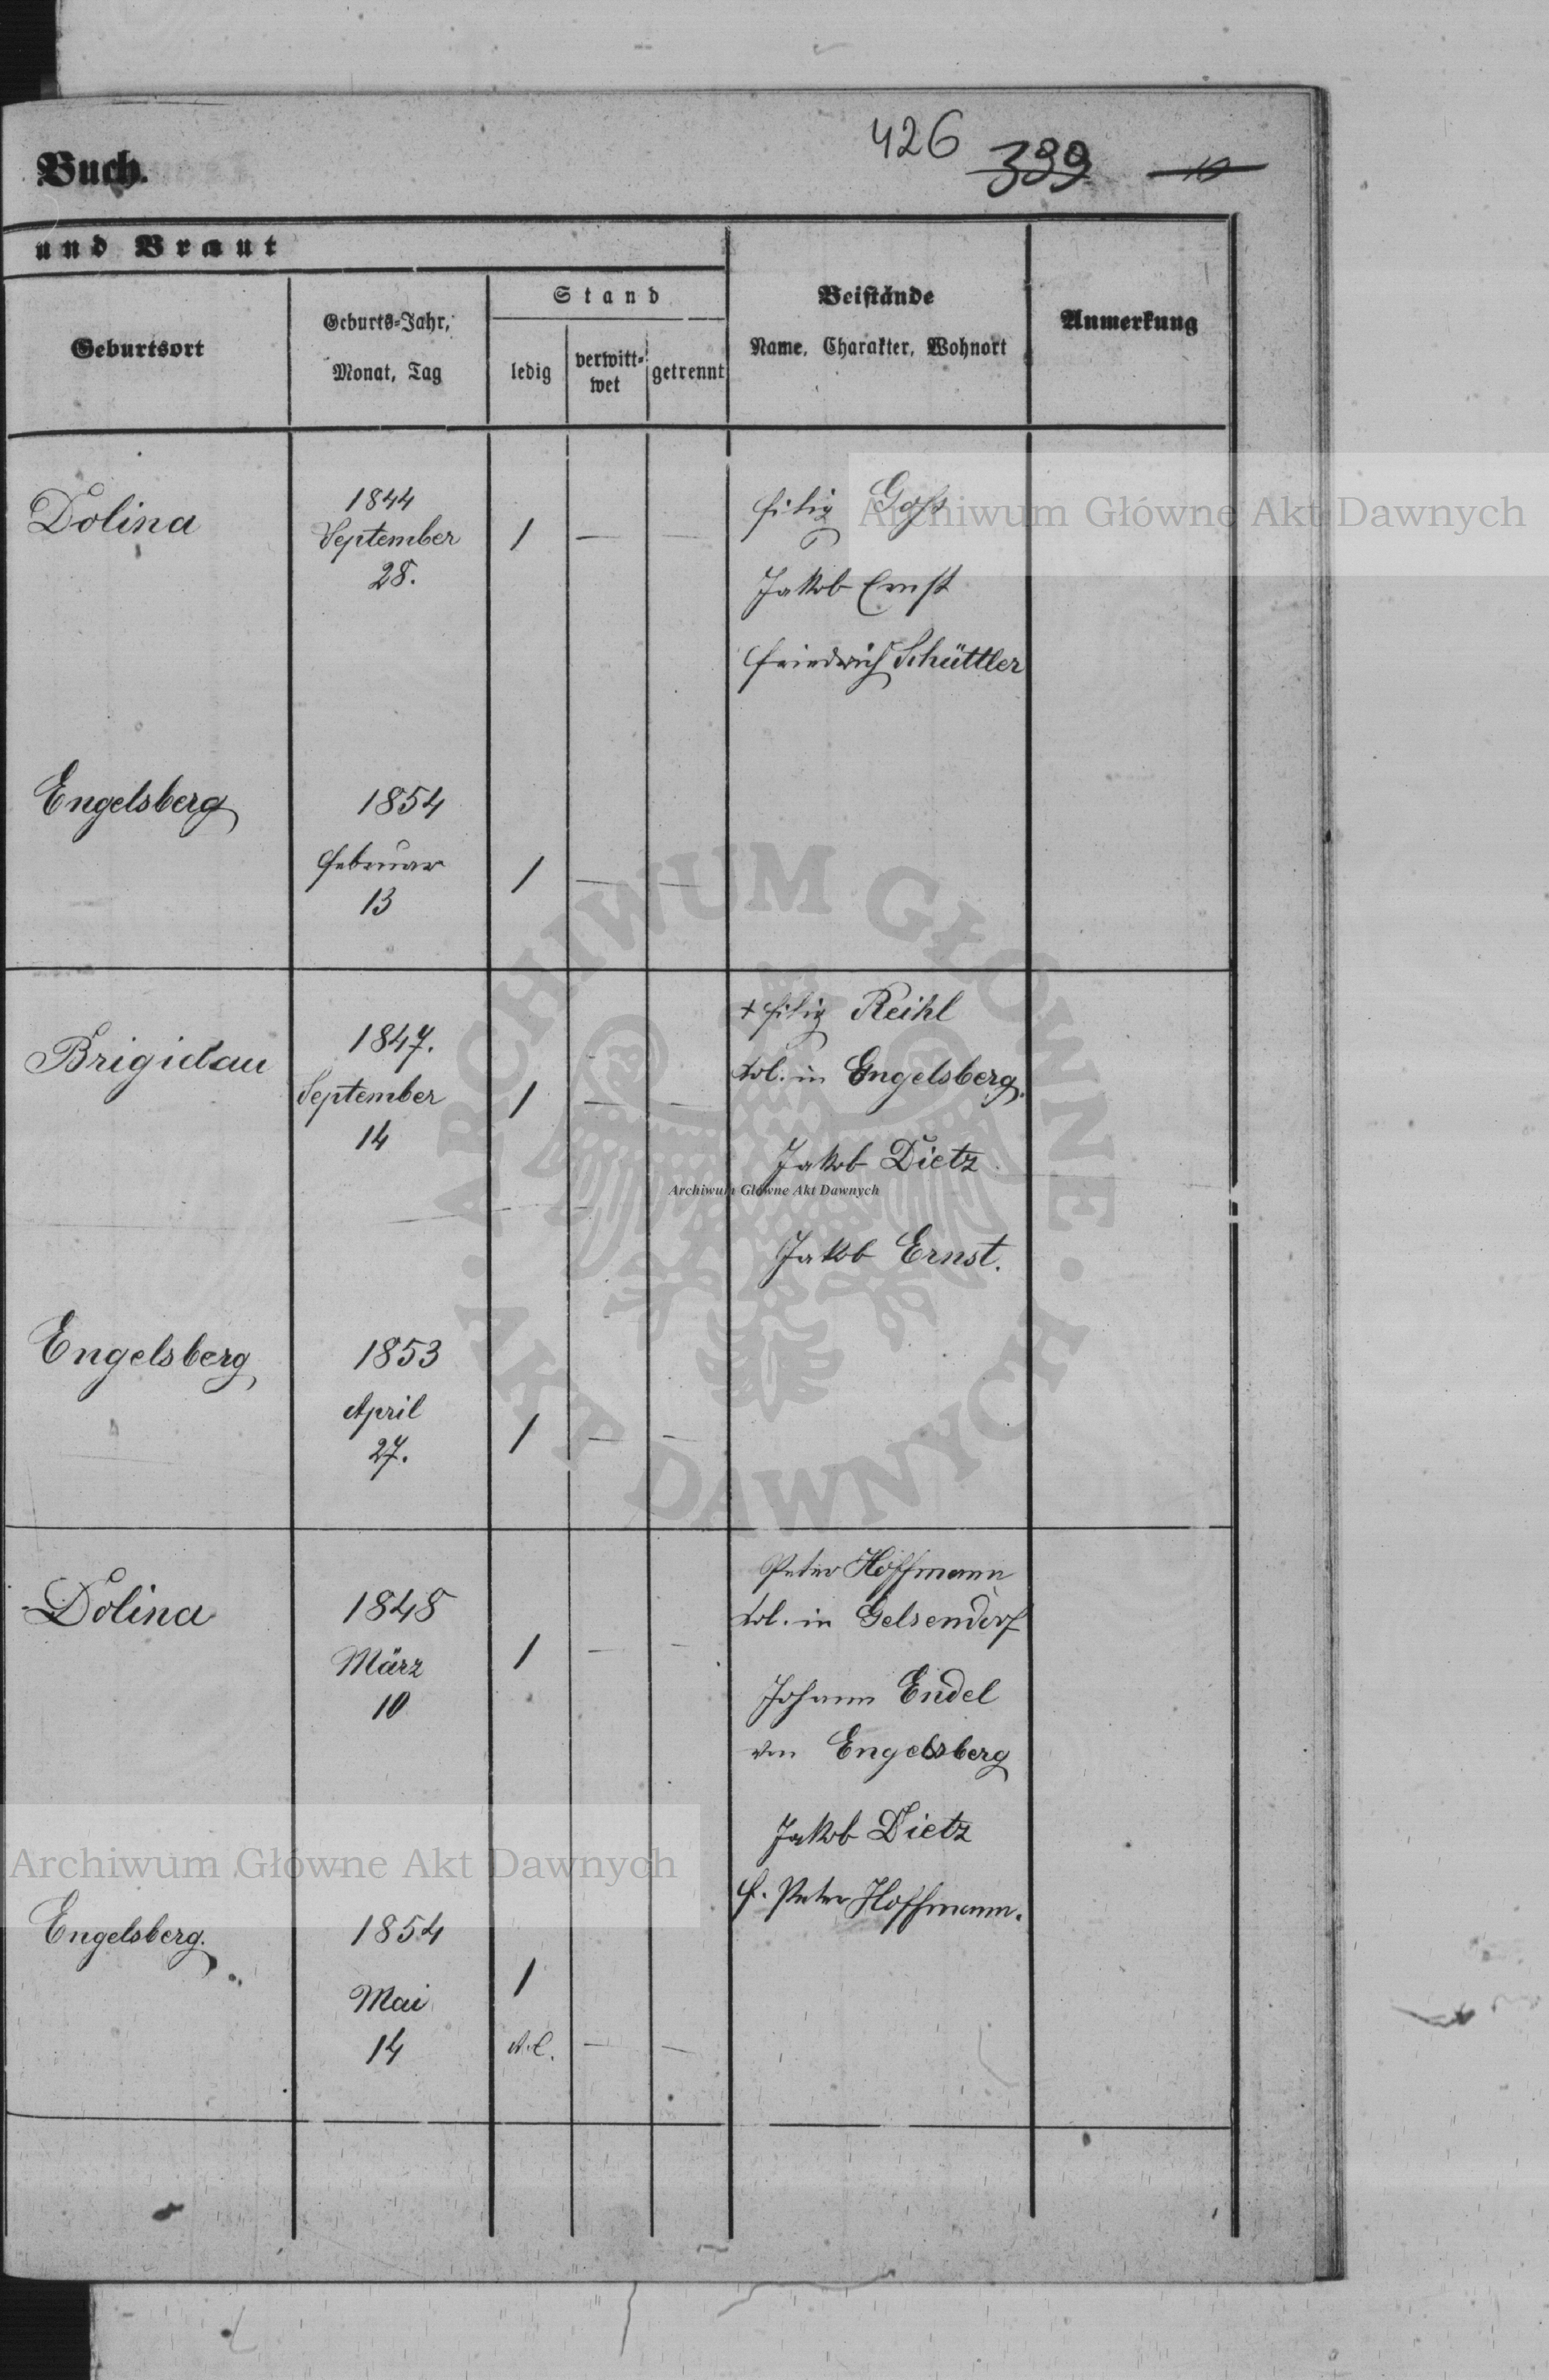 426 399 10
Buch.
und Braut
Geburtsort
Geburts-Jahr,
Monat, Tag
Stand
ledig
verwitt-
wet
getrennt
Beistände
Name, Charakter, Wohnort
Anmerkung
Dolina
1844
September
28.
1 — —
Filip Goss
Jakob Ernst
Friedrich Schüttler
Engelsberg
1854
Februar
13
1 — —
Brigidau
1847.
September
14
1 — —
+ Filip Reihl
Kol. in Engelsberg.
Jakob Dietz
Jakob Ernst.
Engelsberg
1853
April
27.
1 — —
Dolina
1848
März
10
1 — —
Peter Hoffmann
Kol. in Gelsendorf
Johann Endel
von Engelsberg
Jakob Dietz
f. Peter Hoffmann.
Engelsberg.
1854
Mai
14
1
— —
Archiwum Główne Akt Dawnych
ARCHIWUM GŁÓWNE · AKT DAWNYCH ·
Archiwum Główne Akt Dawnych
Archiwum Główne Akt Dawnych